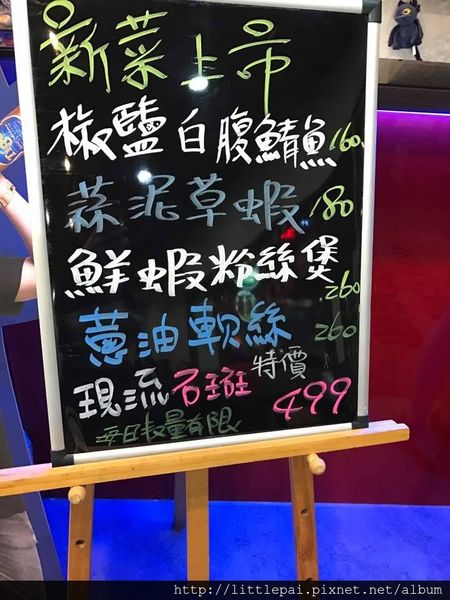 新菜上市
椒鹽白腹鯖魚 160.
蒜泥草蝦 180
鮮蝦粉絲煲 .260
蔥油軟絲 260
現流石斑 特價 499
每日數量有限
http://littlepai.pixnet.net/album